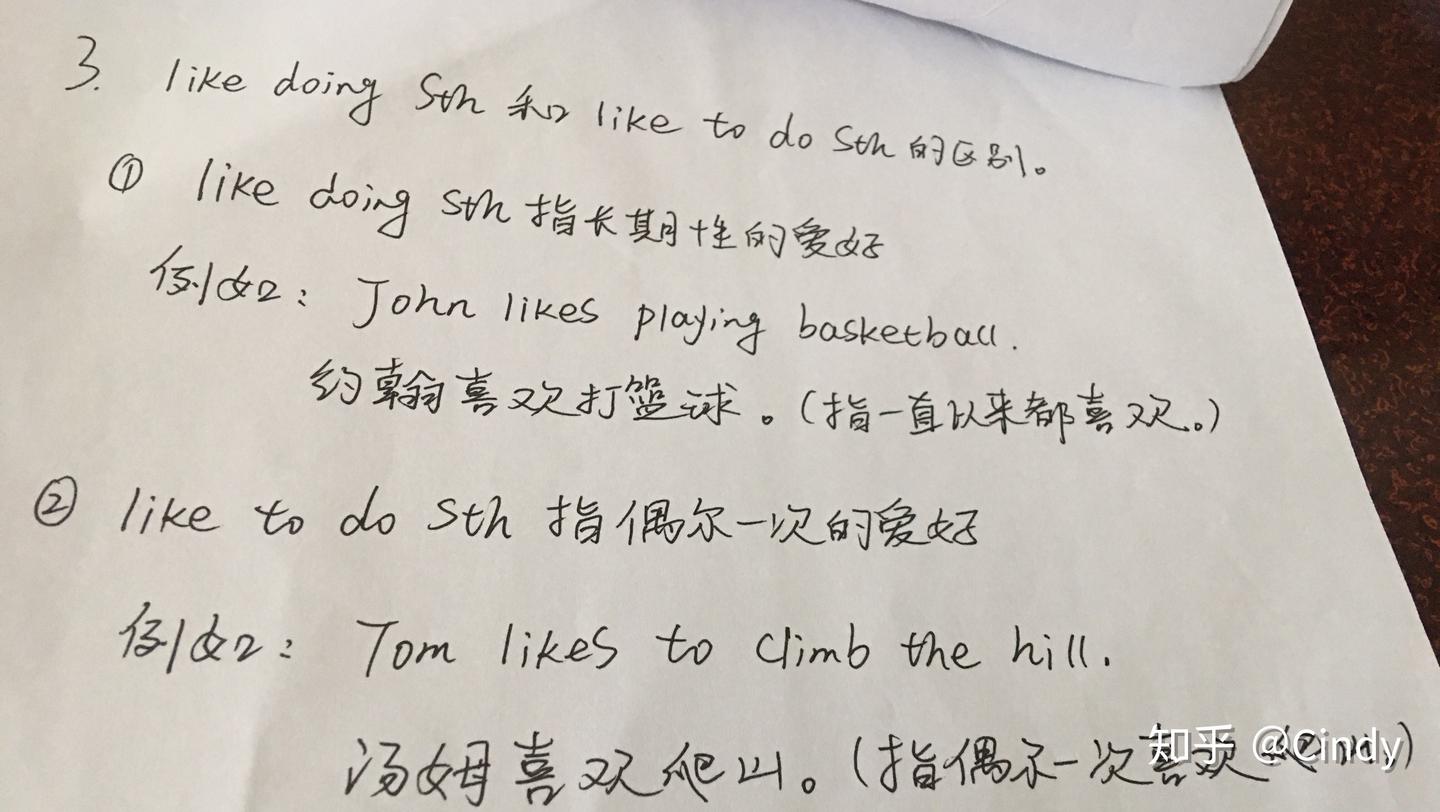 3. like doing sth 和 like to do sth 的区别。
① like doing sth 指长期性的爱好
例如: John likes playing basketball.
约翰喜欢打篮球。(指一直以来都喜欢。)
② like to do sth 指偶尔一次的爱好
例如: Tom likes to climb the hill.
汤姆喜欢爬山。(指偶尔一次喜欢)
知乎 @Cindy